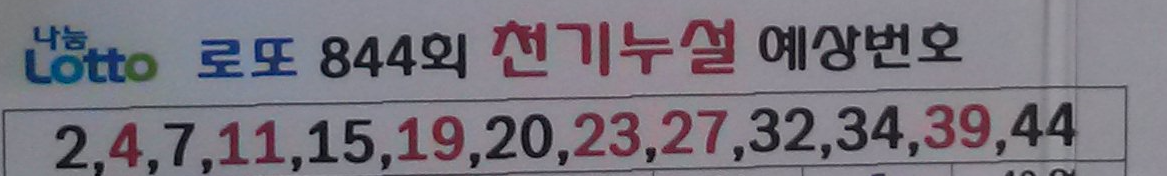 나눔 Lotto 로또 844회 천기누설 예상번호
2,4,7,11,15,19,20,23,27,32,34,39,44